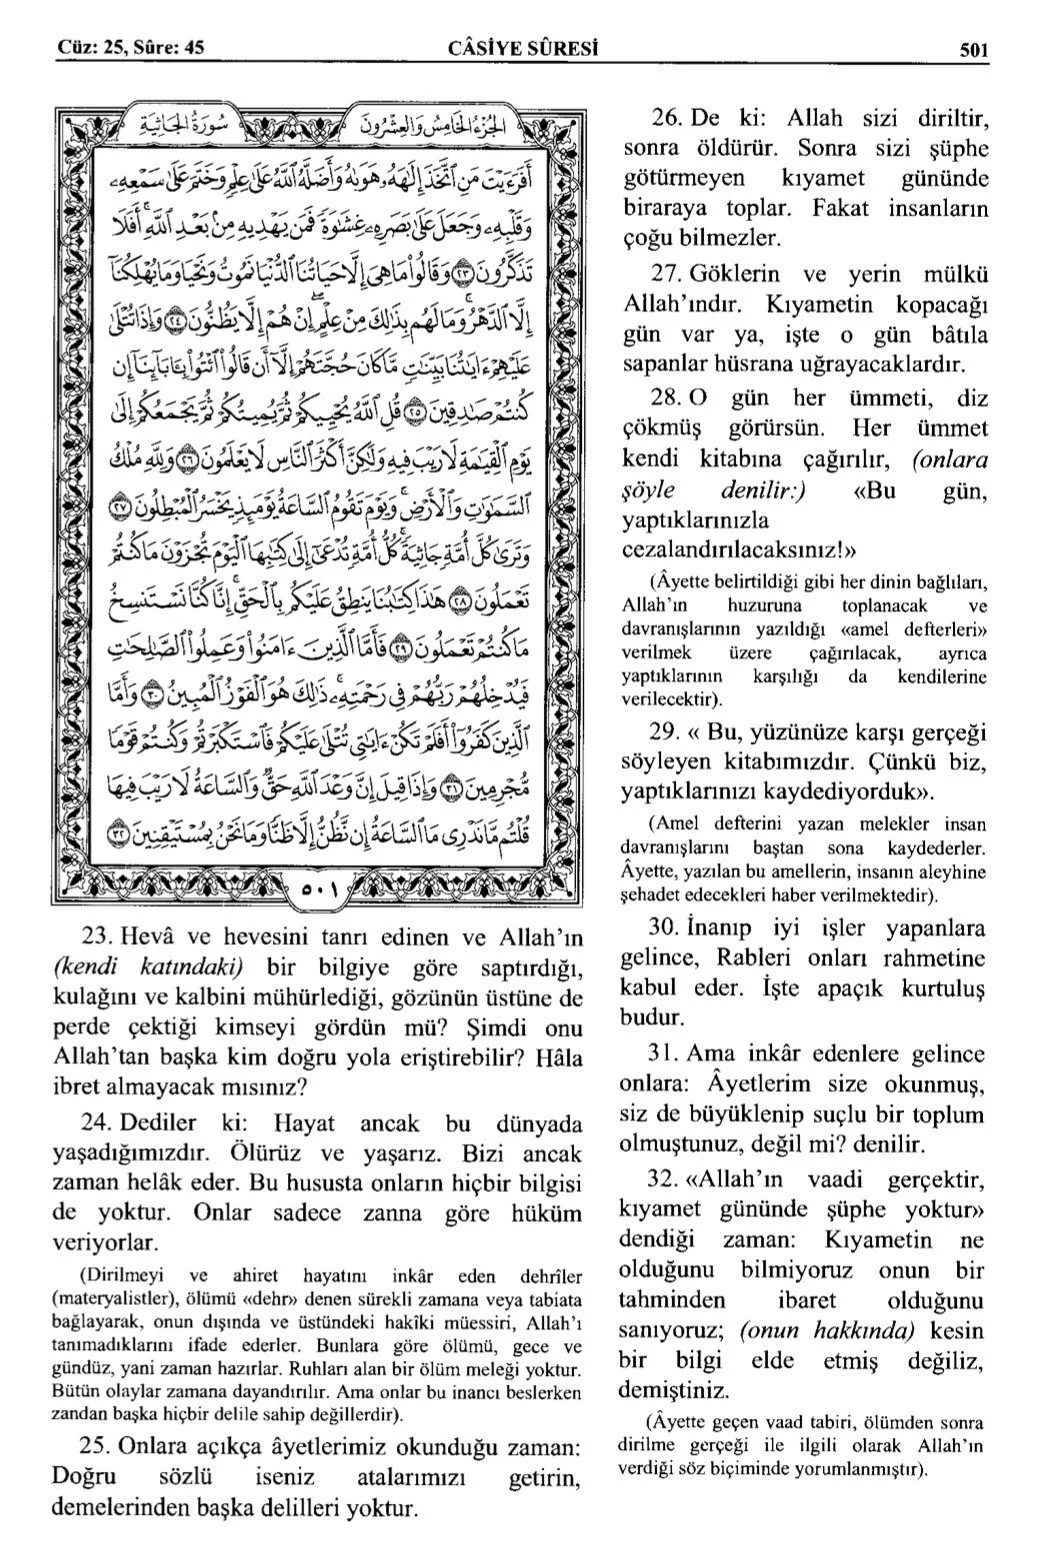 Cüz: 25, Sûre: 45
CÂSİYE SÛRESİ
501
سُورَةُ الْجَاثِيَةِ
الجُزْءُ الخَامِسُ وَالْعِشْرُونَ
أَفَرَءَيْتَ مَنِ ٱتَّخَذَ إِلَٰهَهُۥ هَوَىٰهُ وَأَضَلَّهُ ٱللَّهُ عَلَىٰ عِلْمٍ وَخَتَمَ عَلَىٰ سَمْعِهِۦ
وَقَلْبِهِۦ وَجَعَلَ عَلَىٰ بَصَرِهِۦ غِشَٰوَةً فَمَن يَهْدِيهِ مِنۢ بَعْدِ ٱللَّهِ ۚ أَفَلَا
تَذَكَّرُونَ ﴿٢٣﴾ وَقَالُوا۟ مَا هِىَ إِلَّا حَيَاتُنَا ٱلدُّنْيَا نَمُوتُ وَنَحْيَا وَمَا يُهْلِكُنَآ
إِلَّا ٱلدَّهْرُ ۚ وَمَا لَهُم بِذَٰلِكَ مِنْ عِلْمٍ ۖ إِنْ هُمْ إِلَّا يَظُنُّونَ ﴿٢٤﴾ وَإِذَا تُتْلَىٰ
عَلَيْهِمْ ءَايَٰتُنَا بَيِّنَٰتٍ مَّا كَانَ حُجَّتَهُمْ إِلَّآ أَن قَالُوا۟ ٱئْتُوا۟ بِـَٔابَآئِنَآ إِن
كُنتُمْ صَٰدِقِينَ ﴿٢٥﴾ قُلِ ٱللَّهُ يُحْيِيكُمْ ثُمَّ يُمِيتُكُمْ ثُمَّ يَجْمَعُكُمْ إِلَىٰ
يَوْمِ ٱلْقِيَٰمَةِ لَا رَيْبَ فِيهِ وَلَٰكِنَّ أَكْثَرَ ٱلنَّاسِ لَا يَعْلَمُونَ ﴿٢٦﴾ وَلِلَّهِ مُلْكُ
ٱلسَّمَٰوَٰتِ وَٱلْأَرْضِ ۚ وَيَوْمَ تَقُومُ ٱلسَّاعَةُ يَوْمَئِذٍ يَخْسَرُ ٱلْمُبْطِلُونَ ﴿٢٧﴾
وَتَرَىٰ كُلَّ أُمَّةٍ جَاثِيَةً ۚ كُلُّ أُمَّةٍ تُدْعَىٰٓ إِلَىٰ كِتَٰبِهَا ٱلْيَوْمَ تُجْزَوْنَ مَا كُنتُمْ
تَعْمَلُونَ ﴿٢٨﴾ هَٰذَا كِتَٰبُنَا يَنطِقُ عَلَيْكُم بِٱلْحَقِّ ۚ إِنَّا كُنَّا نَسْتَنسِخُ
مَا كُنتُمْ تَعْمَلُونَ ﴿٢٩﴾ فَأَمَّا ٱلَّذِينَ ءَامَنُوا۟ وَعَمِلُوا۟ ٱلصَّٰلِحَٰتِ
فَيُدْخِلُهُمْ رَبُّهُمْ فِى رَحْمَتِهِۦ ۚ ذَٰلِكَ هُوَ ٱلْفَوْزُ ٱلْمُبِينُ ﴿٣٠﴾ وَأَمَّا
ٱلَّذِينَ كَفَرُوٓا۟ أَفَلَمْ تَكُنْ ءَايَٰتِى تُتْلَىٰ عَلَيْكُمْ فَٱسْتَكْبَرْتُمْ وَكُنتُمْ قَوْمًا
مُّجْرِمِينَ ﴿٣١﴾ وَإِذَا قِيلَ إِنَّ وَعْدَ ٱللَّهِ حَقٌّ وَٱلسَّاعَةُ لَا رَيْبَ فِيهَا
قُلْتُم مَّا نَدْرِى مَا ٱلسَّاعَةُ إِن نَّظُنُّ إِلَّا ظَنًّا وَمَا نَحْنُ بِمُسْتَيْقِنِينَ ﴿٣٢﴾
٥٠١
23. Hevâ ve hevesini tanrı edinen ve Allah’ın
(kendi katındaki) bir bilgiye göre saptırdığı,
kulağını ve kalbini mühürlediği, gözünün üstüne de
perde çektiği kimseyi gördün mü? Şimdi onu
Allah’tan başka kim doğru yola eriştirebilir? Hâla
ibret almayacak mısınız?
24. Dediler ki: Hayat ancak bu dünyada
yaşadığımızdır. Ölürüz ve yaşarız. Bizi ancak
zaman helâk eder. Bu hususta onların hiçbir bilgisi
de yoktur. Onlar sadece zanna göre hüküm
veriyorlar.
(Dirilmeyi ve ahiret hayatını inkâr eden dehrîler
(materyalistler), ölümü «dehr» denen sürekli zamana veya tabiata
bağlayarak, onun dışında ve üstündeki hakîki müessiri, Allah’ı
tanımadıklarını ifade ederler. Bunlara göre ölümü, gece ve
gündüz, yani zaman hazırlar. Ruhları alan bir ölüm meleği yoktur.
Bütün olaylar zamana dayandırılır. Ama onlar bu inancı beslerken
zandan başka hiçbir delile sahip değillerdir).
25. Onlara açıkça âyetlerimiz okunduğu zaman:
Doğru sözlü iseniz atalarımızı getirin,
demelerinden başka delilleri yoktur.
26. De ki: Allah sizi diriltir,
sonra öldürür. Sonra sizi şüphe
götürmeyen kıyamet gününde
biraraya toplar. Fakat insanların
çoğu bilmezler.
27. Göklerin ve yerin mülkü
Allah’ındır. Kıyametin kopacağı
gün var ya, işte o gün bâtıla
sapanlar hüsrana uğrayacaklardır.
28. O gün her ümmeti, diz
çökmüş görürsün. Her ümmet
kendi kitabına çağırılır, (onlara
şöyle denilir:) «Bu gün,
yaptıklarınızla
cezalandırılacaksınız!»
(Âyette belirtildiği gibi her dinin bağlıları,
Allah’ın huzuruna toplanacak ve
davranışlarının yazıldığı «amel defterleri»
verilmek üzere çağırılacak, ayrıca
yaptıklarının karşılığı da kendilerine
verilecektir).
29. « Bu, yüzünüze karşı gerçeği
söyleyen kitabımızdır. Çünkü biz,
yaptıklarınızı kaydediyorduk».
(Amel defterini yazan melekler insan
davranışlarını baştan sona kaydederler.
Âyette, yazılan bu amellerin, insanın aleyhine
şehadet edecekleri haber verilmektedir).
30. İnanıp iyi işler yapanlara
gelince, Rableri onları rahmetine
kabul eder. İşte apaçık kurtuluş
budur.
31. Ama inkâr edenlere gelince
onlara: Âyetlerim size okunmuş,
siz de büyüklenip suçlu bir toplum
olmuştunuz, değil mi? denilir.
32. «Allah’ın vaadi gerçektir,
kıyamet gününde şüphe yoktur»
dendiği zaman: Kıyametin ne
olduğunu bilmiyoruz onun bir
tahminden ibaret olduğunu
sanıyoruz; (onun hakkında) kesin
bir bilgi elde etmiş değiliz,
demiştiniz.
(Âyette geçen vaad tabiri, ölümden sonra
dirilme gerçeği ile ilgili olarak Allah’ın
verdiği söz biçiminde yorumlanmıştır).